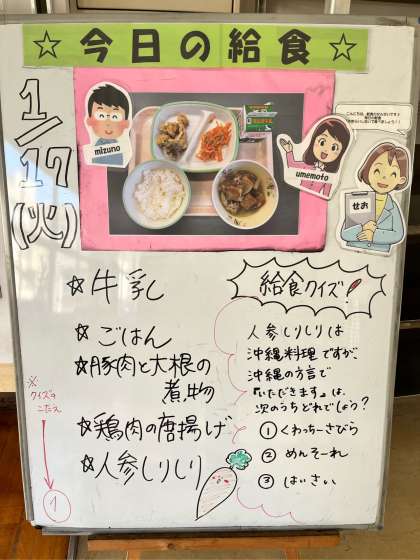 ☆今日の給食☆
1/17
(火)
mizuno
umemoto
せお
☆牛乳
☆ごはん
☆豚肉と大根の
煮物
☆鶏肉の唐揚げ
☆人参しりしり
給食クイズ!
人参しりしりは
沖縄料理ですが、
沖縄の方言で
『いただきます』は、
次のうちどれでしょう?
①くわっちーさびら
②めんそーれ
③はいさい
※
クイズの
こたえ
1